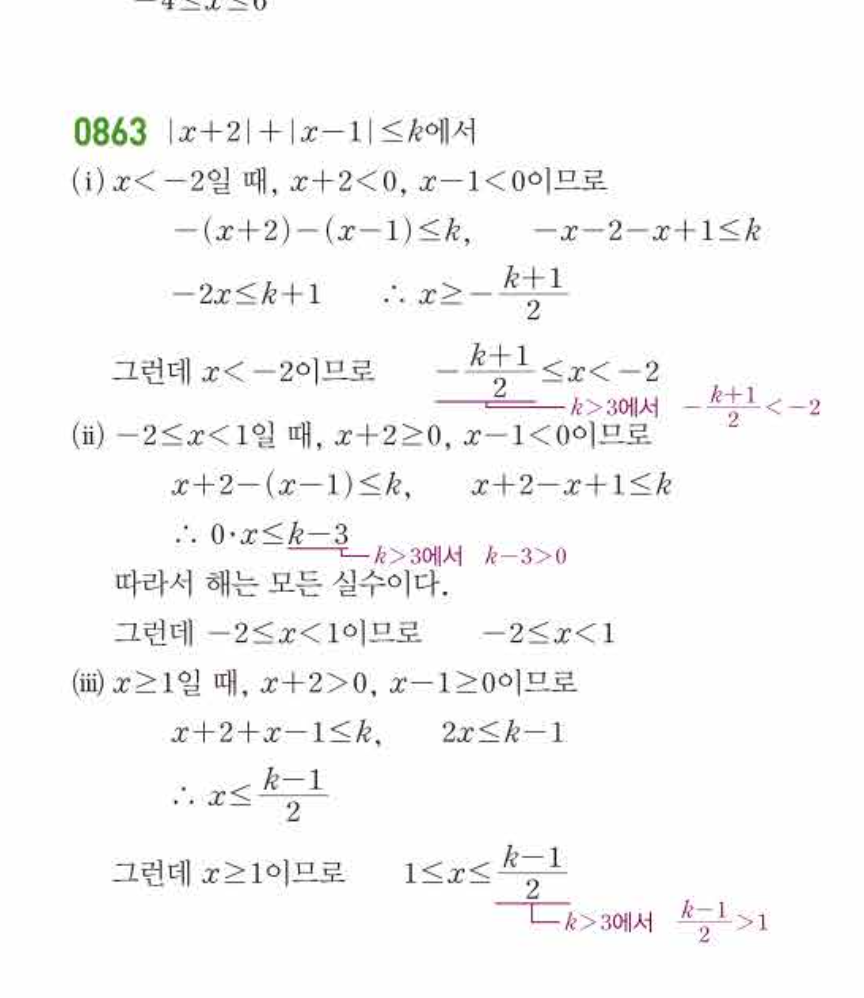 -4≤x≤6
0863 |x+2|+|x-1|≤k에서
(ⅰ) x<-2일 때, x+2<0, x-1<0이므로
-(x+2)-(x-1)≤k, -x-2-x+1≤k
-2x≤k+1 ∴ x≥-\frac{k+1}{2}
그런데 x<-2이므로 -\frac{k+1}{2}≤x<-2
k>3에서 -\frac{k+1}{2}<-2
(ⅱ) -2≤x<1일 때, x+2≥0, x-1<0이므로
x+2-(x-1)≤k, x+2-x+1≤k
∴ 0·x≤k-3
k>3에서 k-3>0
따라서 해는 모든 실수이다.
그런데 -2≤x<1이므로 -2≤x<1
(ⅲ) x≥1일 때, x+2>0, x-1≥0이므로
x+2+x-1≤k, 2x≤k-1
∴ x≤\frac{k-1}{2}
그런데 x≥1이므로 1≤x≤\frac{k-1}{2}
k>3에서 \frac{k-1}{2}>1